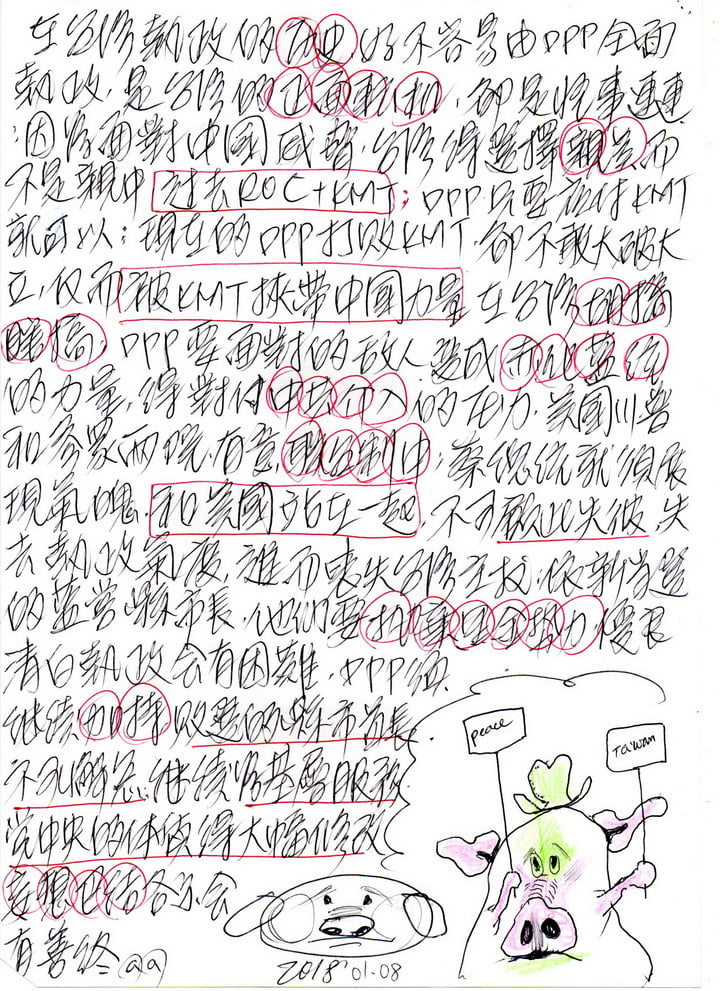 在台灣執政的歷史好不容易由DPP全面
執政,是台灣的正面新機,卻是怪事連連
;因為面對中國威脅,台灣得選擇親美而
不是親中,過去ROC+KMT;DPP只要應付KMT
就可以;現在的DPP打敗KMT,卻不敢大破大
立,反而被KMT挾帶中國力量在台灣胡搞
瞎搞,DPP要面對的敵人變成赤化藍統
的力量,得對付中共介入的壓力,美國川普
和參眾兩院有意聯台制中;蔡總統就須展
現氣魄,和美國站在一起,不可顧此失彼,失
去執政氣度,進而喪失台灣主权;依新當選
的藍營縣市長,他們要扒黑金勢力,優良
清白執政会有困難,DPP須
継續力捧敗選的縣市首長
不可懈怠,継續為基層服務
党中央的体質得大幅修改
妄想巴結会不会
有善終@@
peace
Taiwan
2018'01-08